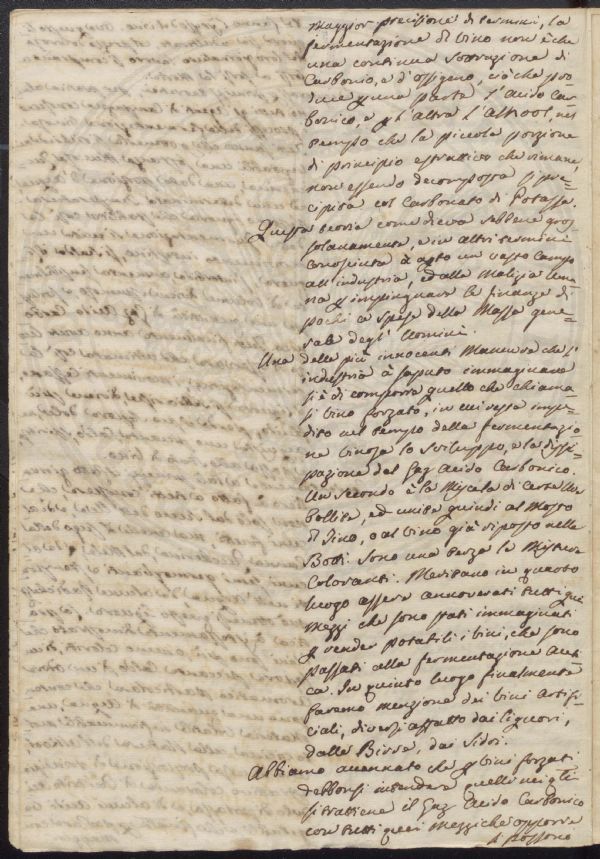 maggior precisione di termini, la
fermentazione di vino non è che
una continua sottrazione di
Carbonio, e d'ossigeno, ciò che pro-
duce p una parte l'acido Car-
bonico, e p l'altra l'alkool, nel
tempo che la piccola porzione
di principio estrattivo che rimane,
non essendo decomposta si pre-
cipita col Carbonato di Potassa.
Questa teoria come dicea sebbene gros-
solanamente, e in altri termini
conosciuta à apto un vasto campo
all'industria, ed alla malizia uma-
na p impinguare le finanze di
pochi a spese della Massa gene-
rale degl' Uomini.
Una delle più innocenti Manuvre che l'
industria à saputo immaginare
si è di comporre quello che chiama-
si vino forzato, in cui resta impe-
dito nel tempo della fermentazio
ne vinosa lo sviluppo, e la dissi-
pazione del Gaz acido Carbonico.
Un secondo è la Miscela di certe Uve
bollite, ed unite quindi al Mosto
di Tino, o al vino già riposto nelle
Botti. Sono una terza le Misture
Coloranti. Meritano in quarto
luogo essere annoverati tutti que
mezzi che sono stati immaginati
p render potabili i vini, che sono
passati alla fermentazione aceti-
ca. In quinto luogo finalmente
faremo menzione dei vini artifi-
ciali, diversi affatto dai liquori,
dalla Birra, dai Sidri.
Abbiamo accennato che p vini forzati
debbonsi intendere quelli nei qli
si trattiene il Gaz acido Carbonico
con tutti quei mezzi che opporre
si possono